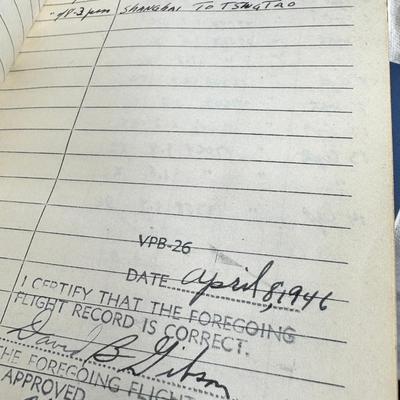 SHANGHAI TO TSINGTAO
VPB-26
DATE April 8, 1946
I CERTIFY THAT THE FOREGOING
FLIGHT RECORD IS CORRECT.
David B Gibson
THE FOREGOING FLIGHT
APPROVED